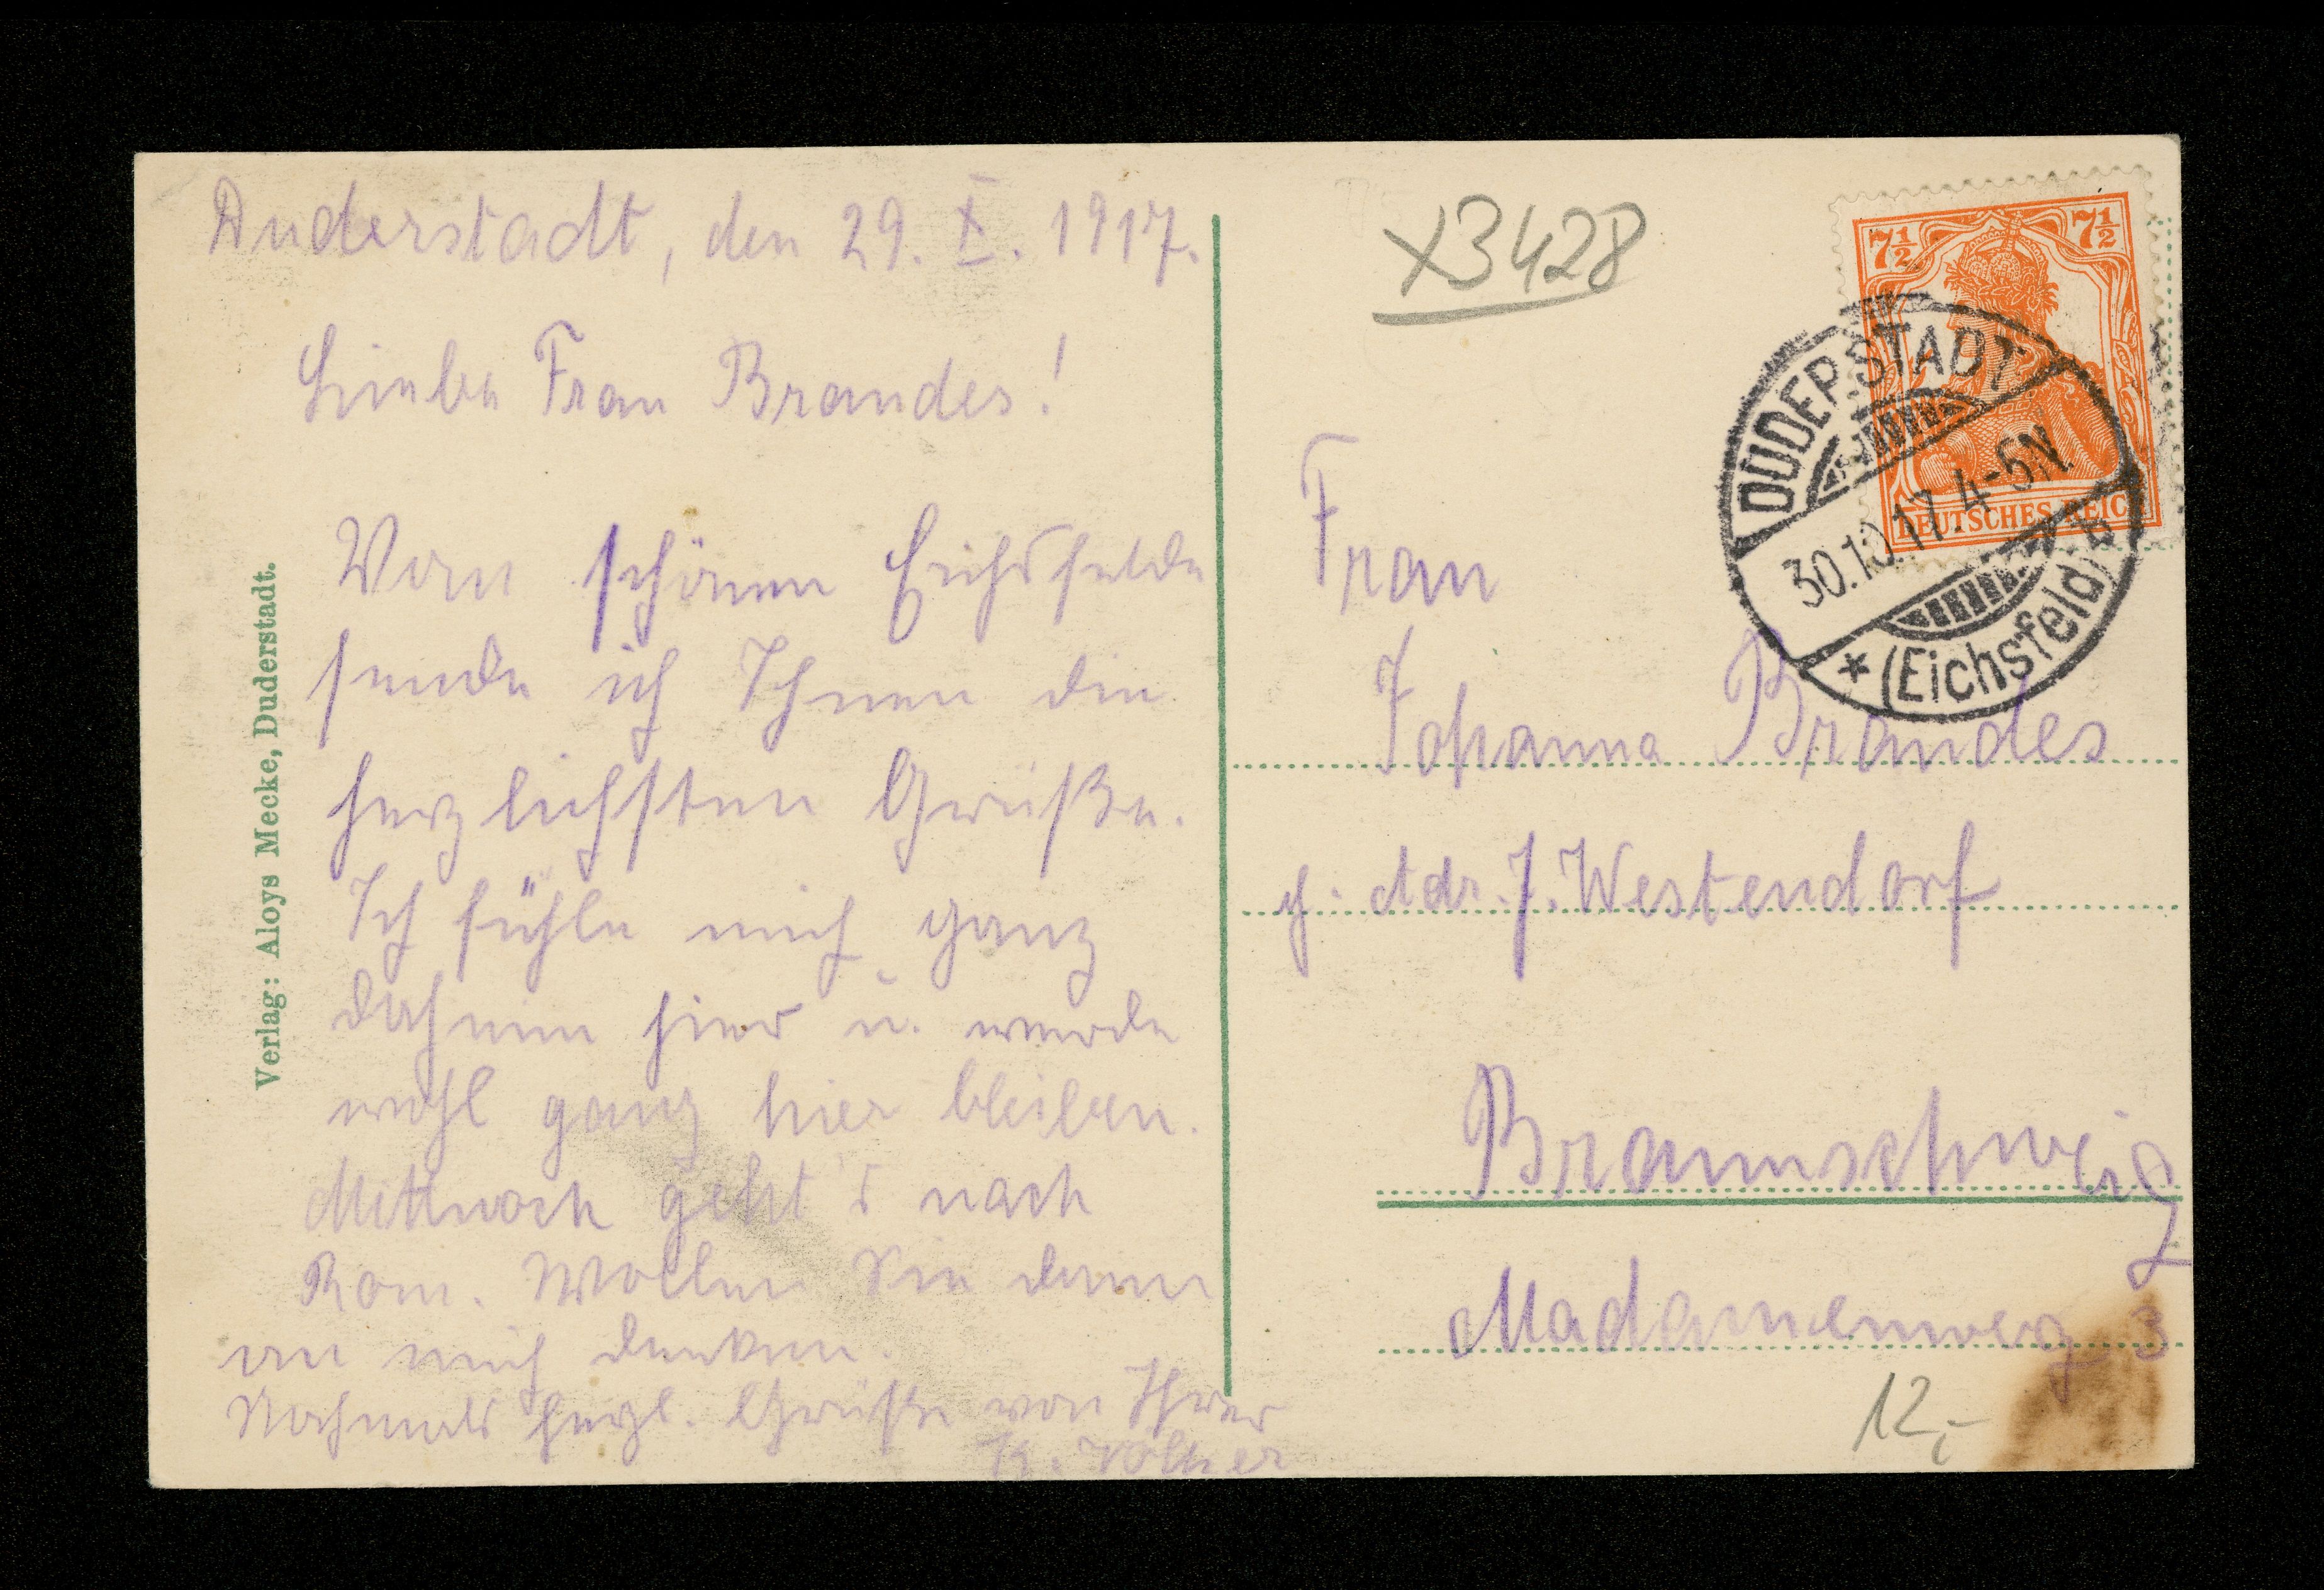 Duderstadt, den 29. X. 1917.
Liebe Frau Brandes!
Vom schönen Eichsfelde
sende ich Ihnen die
herzlichsten Grüße.
Ich fühle mich ganz
daheim hier u. werde
wohl ganz hier bleiben.
Mittwoch geht's nach
Rom. Wollen Sie dann
an mich denken.
Nochmals herzl. Grüße von Ihrer
Verlag: Aloys Mecke, Duderstadt.
X3428
7½ 7½
DEUTSCHES REICH
DUDERSTADT
30.10.17.4-5N.
* (Eichsfeld) b
Frau
Johanna Brandes
Adr. J. Westendorf
Braunschweig
Madamenweg 3
12,-